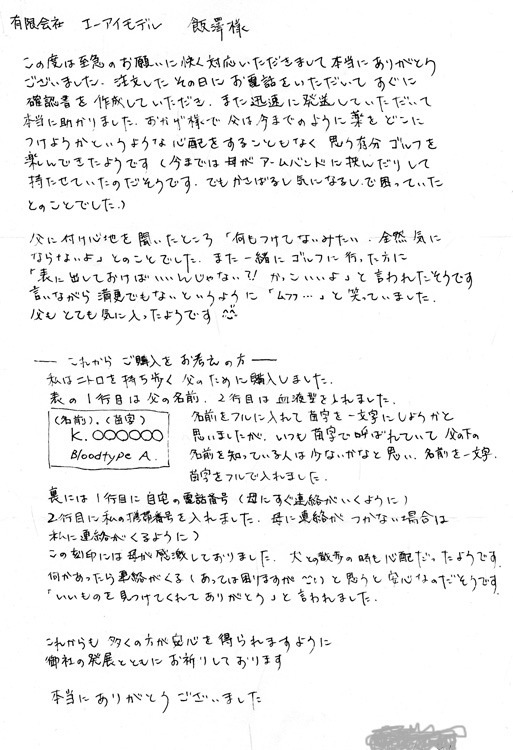 有限会社 エーアイモデル 飯澤様
この度は至急のお願いに快く対応いただきまして本当にありがとう
ございました。注文したその日にお電話をいただいて すぐに
確認書を作成していただき、また迅速に発送していただいて
本当に助かりました。おかげ様で父は今までのように薬をどこに
つけようかというような心配をすることもなく 思う存分ゴルフを
楽しんできたようです(今までは母がアームバンドに挟んだりして
持たせていたのだそうです。でもかさばるし気になるしで困っていた
とのことでした。)
父に付け心地を聞いたところ「何もつけてないみたい。全然気に
ならないよ」とのことでした。また一緒にゴルフに行った方に
「表に出しておけばいいんじゃない?! かっこいいよ」と言われたそうです
言いながら満更でもないというように「ムフフ…」と笑っていました。
父もとても気に入ったようです
― これから ご購入を お考えの方 ―
私はニトロを持ち歩く父のために購入しました。
表の1行目は父の名前、2行目は血液型を入れました。
(名前).(苗字)
K. ○○○○○○
Bloodtype A.
名前をフルに入れて苗字を一文字にしようかと
思いましたが、いつも苗字で呼ばれていて 父の下の
名前を知っている人は少ないかなと思い、名前を一文字、
苗字をフルで入れました。
裏には1行目に自宅の電話番号(母にすぐ連絡がいくように)
2行目に私の携帯番号を入れました。母に連絡がつかない場合は
私に連絡がくるように)
この刻印には母が感激しておりました。犬との散歩の時も心配だったようです。
何かあったら連絡がくる(あっては困りますが)と思うと安心なのだそうです。
「いいものを見つけてくれてありがとう」と言われました。
これからも多くの方が安心を得られますように
御社の発展とともにお祈りしております
本当にありがとうございました